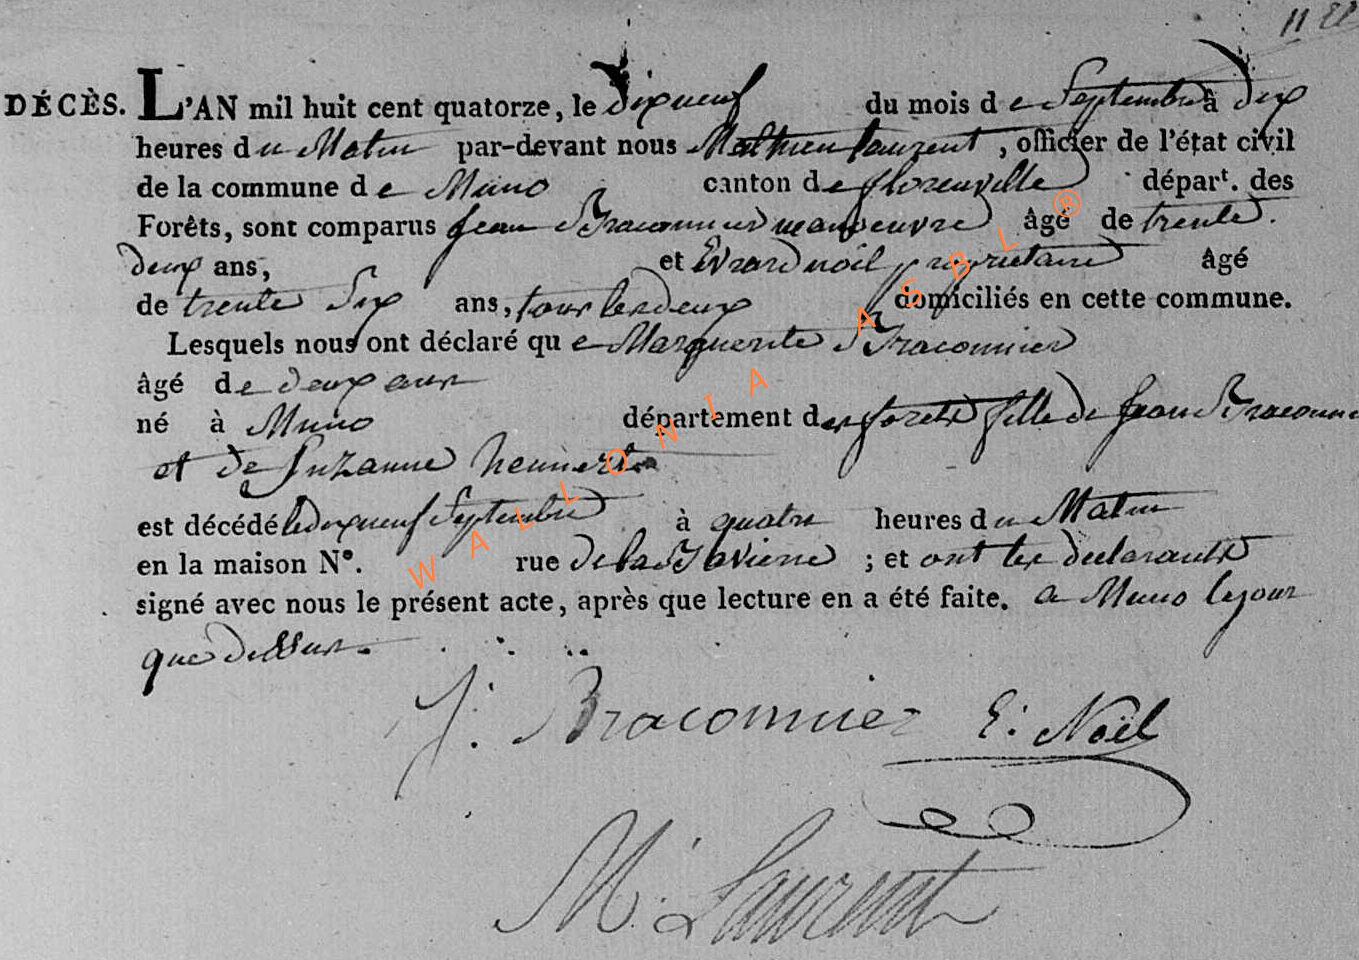 11 
DÉCÈS. L'AN mil huit cent quatorze, le dixneuf du mois de Septembre à dix
heures du Matin par-devant nous Mathieu Laurent, officier de l'état civil
de la commune de Muno canton de florenville départ. des
Forêts, sont comparus Jean Braconnier manoeuvre âgé de trente
deux ans, et Evrard noël proprietaire âgé
de trente Six ans, tous les deux domiciliés en cette commune.
Lesquels nous ont déclaré que Marguerite Braconnier
âgé de deux ans
né à Muno département des forets fille de Jean Braconnie
et de Suzanne hennert
est décédé le dixneuf Septembre à quatre heures du Matin
en la maison N°. rue de la ; et ont les declarants
signé avec nous le présent acte, après que lecture en a été faite. a Muno le jour
que dessus.
J: Braconnier E: Noël
M: Laurent
WALLONIA ASBL ®